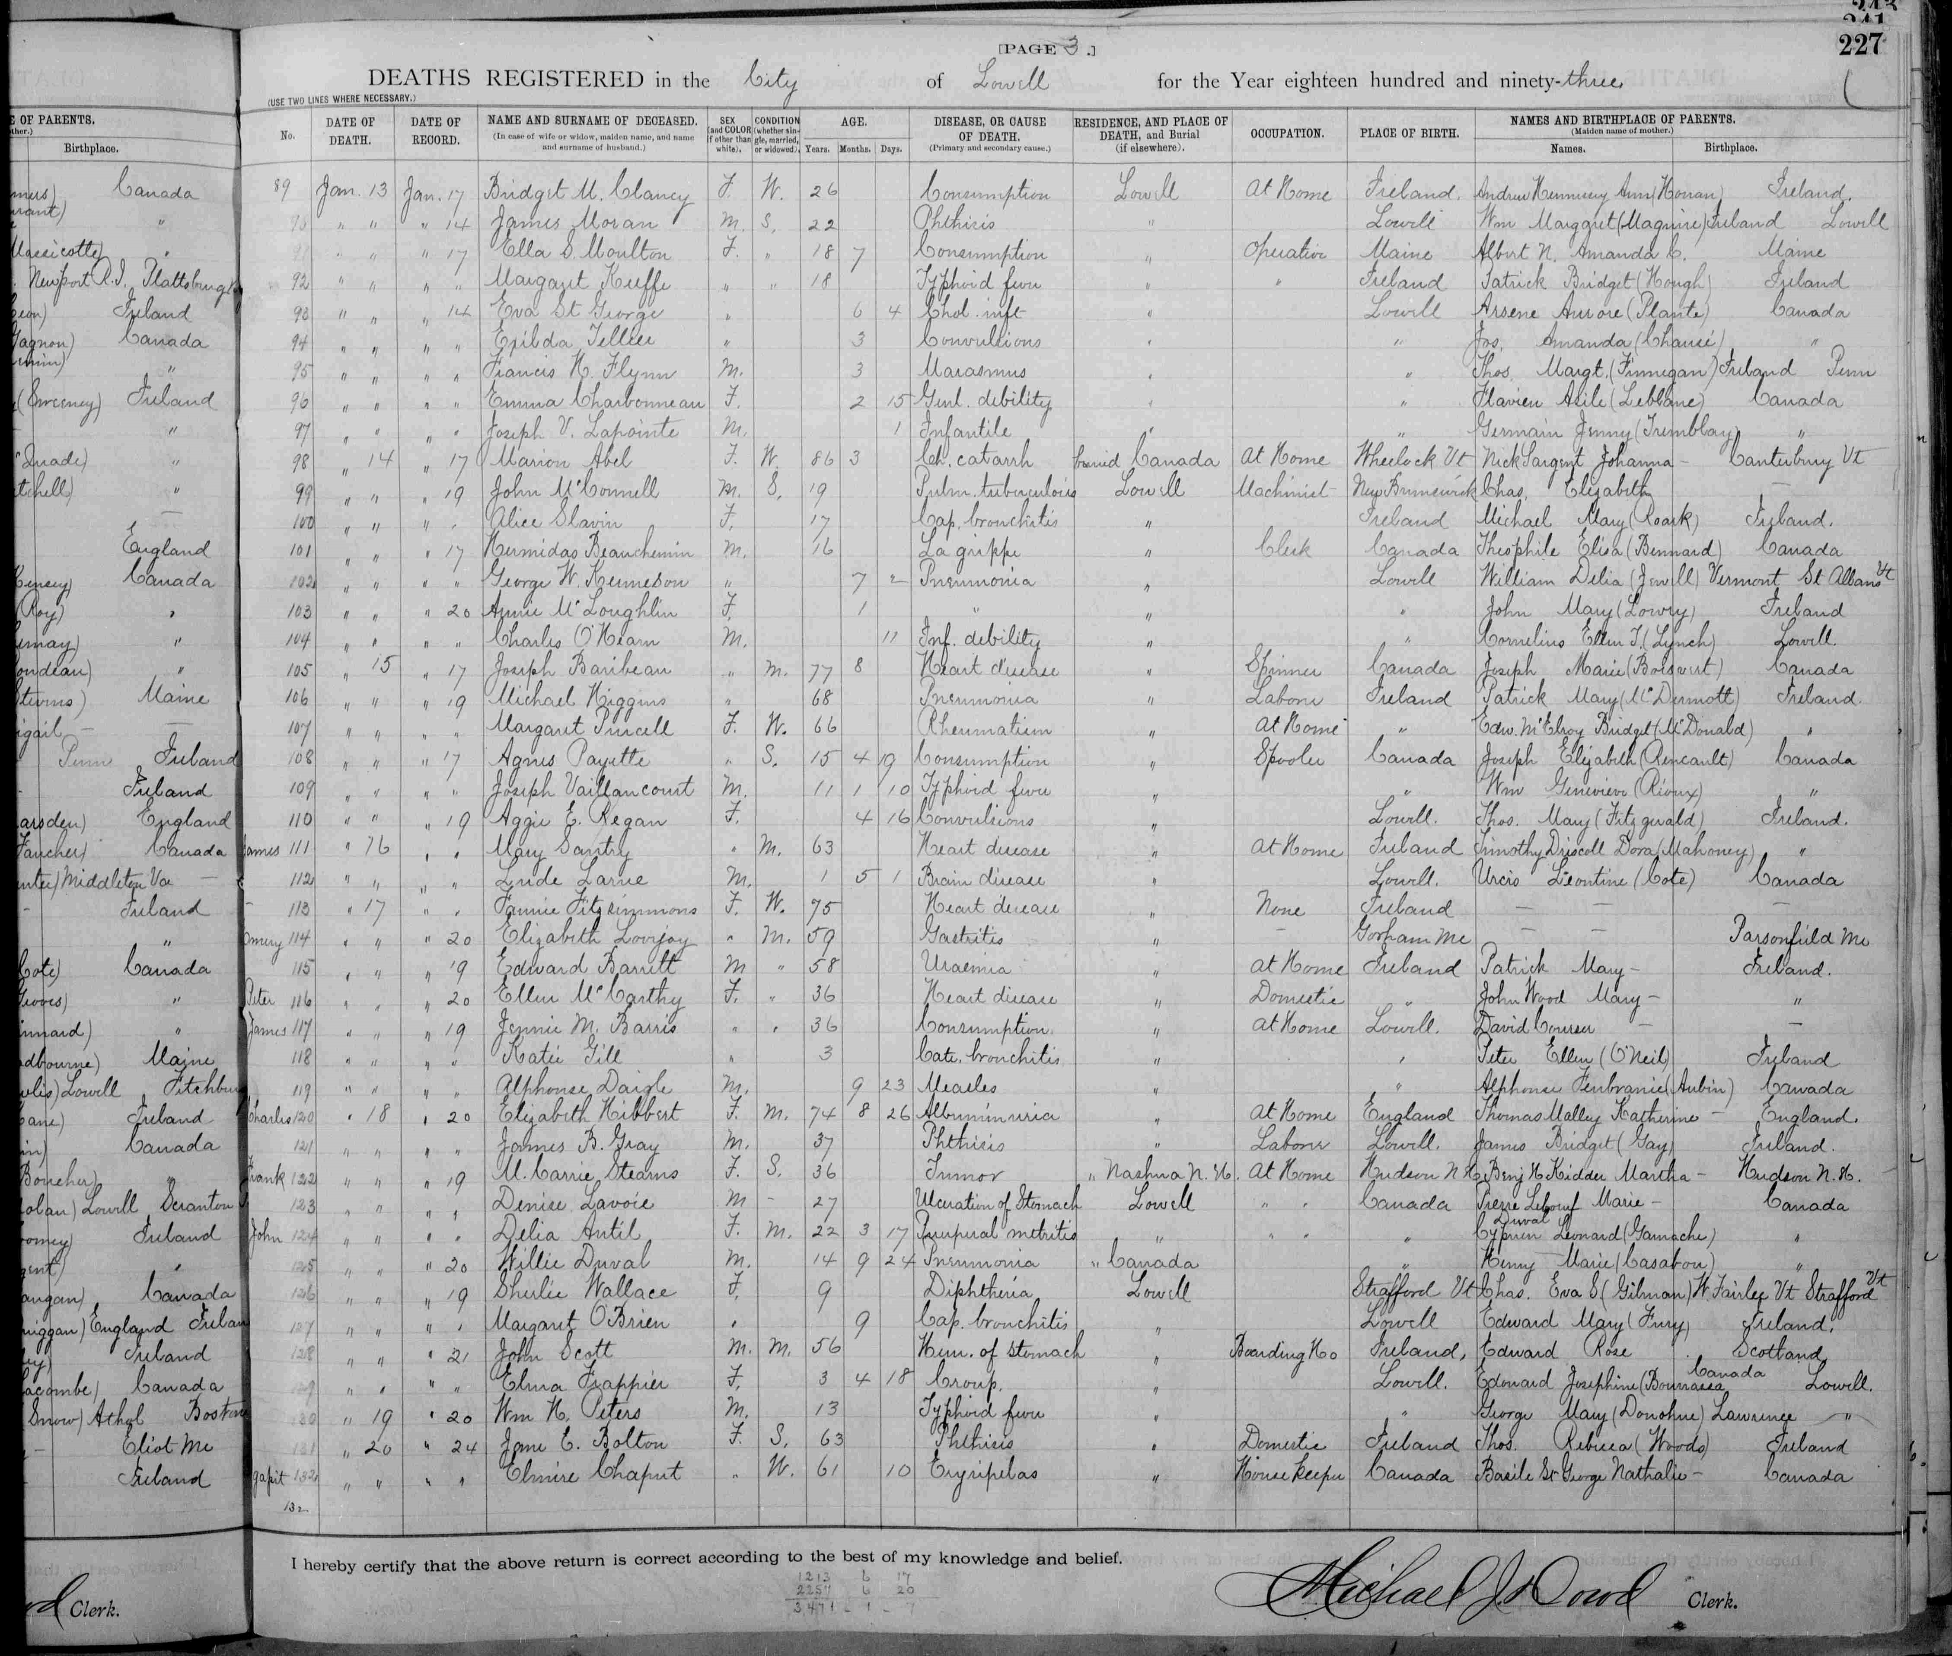 243
241
227
[PAGE 3.]
DEATHS REGISTERED in the City of Lowell for the Year eighteen hundred and ninety-three
(USE TWO LINES WHERE NECESSARY.)
No. DATE OF DEATH. DATE OF RECORD. NAME AND SURNAME OF DECEASED. (In case of wife or widow, maiden name, and name and surname of husband.) SEX (and COLOR if other than white). CONDITION (whether single, married, or widowed). AGE. Years. Months. Days. DISEASE, OR CAUSE OF DEATH. (Primary and secondary cause.) RESIDENCE, AND PLACE OF DEATH, and Burial (if elsewhere). OCCUPATION. PLACE OF BIRTH. NAMES AND BIRTHPLACE OF PARENTS. (Maiden name of mother.) Names. Birthplace.
89 Jan. 13 Jan. 17 Bridget M. Clancy F. W. 26 Consumption Lowell At Home Ireland. Andrew Hennessy Ann (Honan) Ireland.
" " " 14 James Moran M. S. 22 Phthisis " Lowell Wm Margaret (Maguire) Ireland Lowell
" " " 17 Ella S. Moulton F. " 18 7 Consumption " Operative Maine Albert N. Amanda C. Maine
92 " " " " Margaret Keeffe " " 18 Typhoid fever " " Ireland Patrick Bridget (Hough) Ireland
93 " " " 14 Eva St George " 6 4 Chol. inft " Lowell Arsene Aurore (Plante) Canada
94 " " " " Exilda Tellier " 3 Convulsions " " Jos. Amanda "
95 " " " " Francis H. Flynn M. 3 Marasmus " " Thos. Margt. (Finnegan) Ireland Penn
96 " " " " Emma Charbonneau F. 2 15 Genl. debility " " Flavien (Leblanc) Canada
97 " " " " Joseph V. Lapointe M. 1 Infantile " " Germain Jenny (Tremblay) "
98 " 14 " 17 Marion Abel F. W. 86 3 Ch. catarrh buried Canada At Home Wheelock Vt Nick Sargent Johanna - Canterbury Vt
99 " " " 19 John McConnell M. S. 19 Pulm. tuberculosis Lowell Machinist New Brunswick Chas. Elizabeth —
100 " " " " Alice Slavin F. 17 Cap. bronchitis " Ireland Michael Mary (Roark) Ireland.
101 " " " 17 Hermidas Beauchemin M. 16 La grippe " Clerk Canada Theophile Elisa (Bennard) Canada
102 " " " " George W. Kenneson " 7 2 Pneumonia " Lowell William Delia (Jewell) Vermont St Albans Vt
103 " " " 20 Annie McLoughlin F. 1 " " " John Mary (Lowry) Ireland
104 " " " " Charles O'Hearn M. 11 Inf. debility " " Cornelius Ellen T. (Lynch) Lowell.
105 " 15 " 17 Joseph Baribeau " M. 77 8 Heart disease " Spinner Canada Joseph Marie (Boisvert) Canada
106 " " " 19 Michael Higgins " 68 Pneumonia " Laborer Ireland Patrick Mary (McDermott) Ireland.
107 " " " " Margaret Purcell F. W. 66 Rheumatism " At Home " Edw. McElroy Bridget (McDonald) "
108 " " " 17 Agnes Payette " S. 15 4 19 Consumption " Spooler Canada Joseph Elizabeth (Rencault) Canada
109 " " " " Joseph Vaillancourt M. 11 1 10 Typhoid fever " " Wm Genevieve (Rioux) "
110 " " " 19 Aggie E. Regan F. 4 16 Convulsions " Lowell. Thos. Mary (Fitzgerald) Ireland.
James 111 " 16 " " Mary Santry " M. 63 Heart disease " At Home Ireland Timothy Driscoll Dora (Mahoney) "
112 " " " " Larue M. 1 5 1 Brain disease " Lowell. Leontine (Cote) Canada
113 " 17 " " Fannie Fitzsimmons F. W. 75 Heart disease " None Ireland — — —
114 " " " 20 Elizabeth Lovejoy " M. 59 Gastritis " - Gorham Me — — Parsonfield Me
115 " " " 19 Edward Barrett M " 58 Uraemia " At Home Ireland Patrick Mary - Ireland.
Peter 116 " " " 20 Ellen McCarthy F. " 36 Heart disease " Domestic " John Wood Mary - "
James 117 " " " 19 Jennie M. Barris " " 36 Consumption " At Home Lowell. David — —
118 " " " " Katie Gill " 3 Cate. bronchitis " " Peter Ellen (O'Neil) Ireland
119 " " " " Alphonse Daigle M. 9 23 Measles " " Alphonse (Aubin) Canada
Charles 120 " 18 " 20 Elizabeth Hibbert F. M. 74 8 26 Albuminuria " At Home England Thomas Malley Katherine - England.
121 " " " " James B. Gray M. 37 Phthisis " Laborer Lowell. James Bridget (Gay) Ireland.
Frank 122 " " " 19 M. Carrie Stearns F. S. 36 Tumor " Nashua N.H. At Home Hudson N.H. Benj H Kidder Martha - Hudson N.H.
123 " " " " Denise Lavoie M - 27 Ulceration of Stomach Lowell " " Canada Pierre Leboeuf Marie - Canada
John 124 " " " " Delia Antil F. M. 22 3 17 Puerperal metritis " " " " Duval Cyprien Leonard (Gamache) "
125 " " " 20 Willie Duval M. 14 9 24 Pneumonia " Canada " Henry Marie (Casabon) "
126 " " " 19 Sherlie Wallace F. 9 Diphtheria Lowell Strafford Vt Chas. Eva S (Gilman) W. Fairlee Vt Strafford Vt
127 " " " " Margaret O'Brien " 9 Cap. bronchitis " Lowell Edward Mary (Fury) Ireland.
128 " " " 21 John Scott M. M. 56 Hem. of stomach " Boarding Ho Ireland, Edward Rose Scotland
129 " " " " Elma Frappier F. 3 4 18 Croup. " Lowell. Edouard Josephine (Bournassa Canada Lowell.
130 " 19 " 20 Wm H. Peters M. 13 Typhoid fever " " George Mary (Donohue) Lawrence "
131 " 20 " 24 Jane E. Bolton F. S. 63 Phthisis " Domestic Ireland Thos. Rebecca (Woods) Ireland
132 " " " " Elmire Chaput " W. 61 10 Erysipelas " House keeper Canada Basile St George Nathalie - Canada
132
I hereby certify that the above return is correct according to the best of my knowledge and belief.
1213 6 17
2257 6 20
3471 - 1 - 7
Michael J. Dowd Clerk.
E OF PARENTS.
Birthplace.
Canada
"
Massicotte) "
Newport R.I. Plattsburgh
Ireland
Gagnon) Canada
"
(Sweeney) Ireland
"
"
"
—
England
Canada
(Roy) "
"
"
Maine
—
Penn Ireland
Ireland
England
Canada
Middleton —
Ireland
"
Cote) Canada
"
"
Maine
Lowell Fitchburg
Ireland
Canada
Boucher) "
Lowell Scranton
Ireland
"
Canada
England Ireland
Ireland
Lacombe) Canada
Snow) Athol Boston
Eliot Me
Ireland
Clerk.